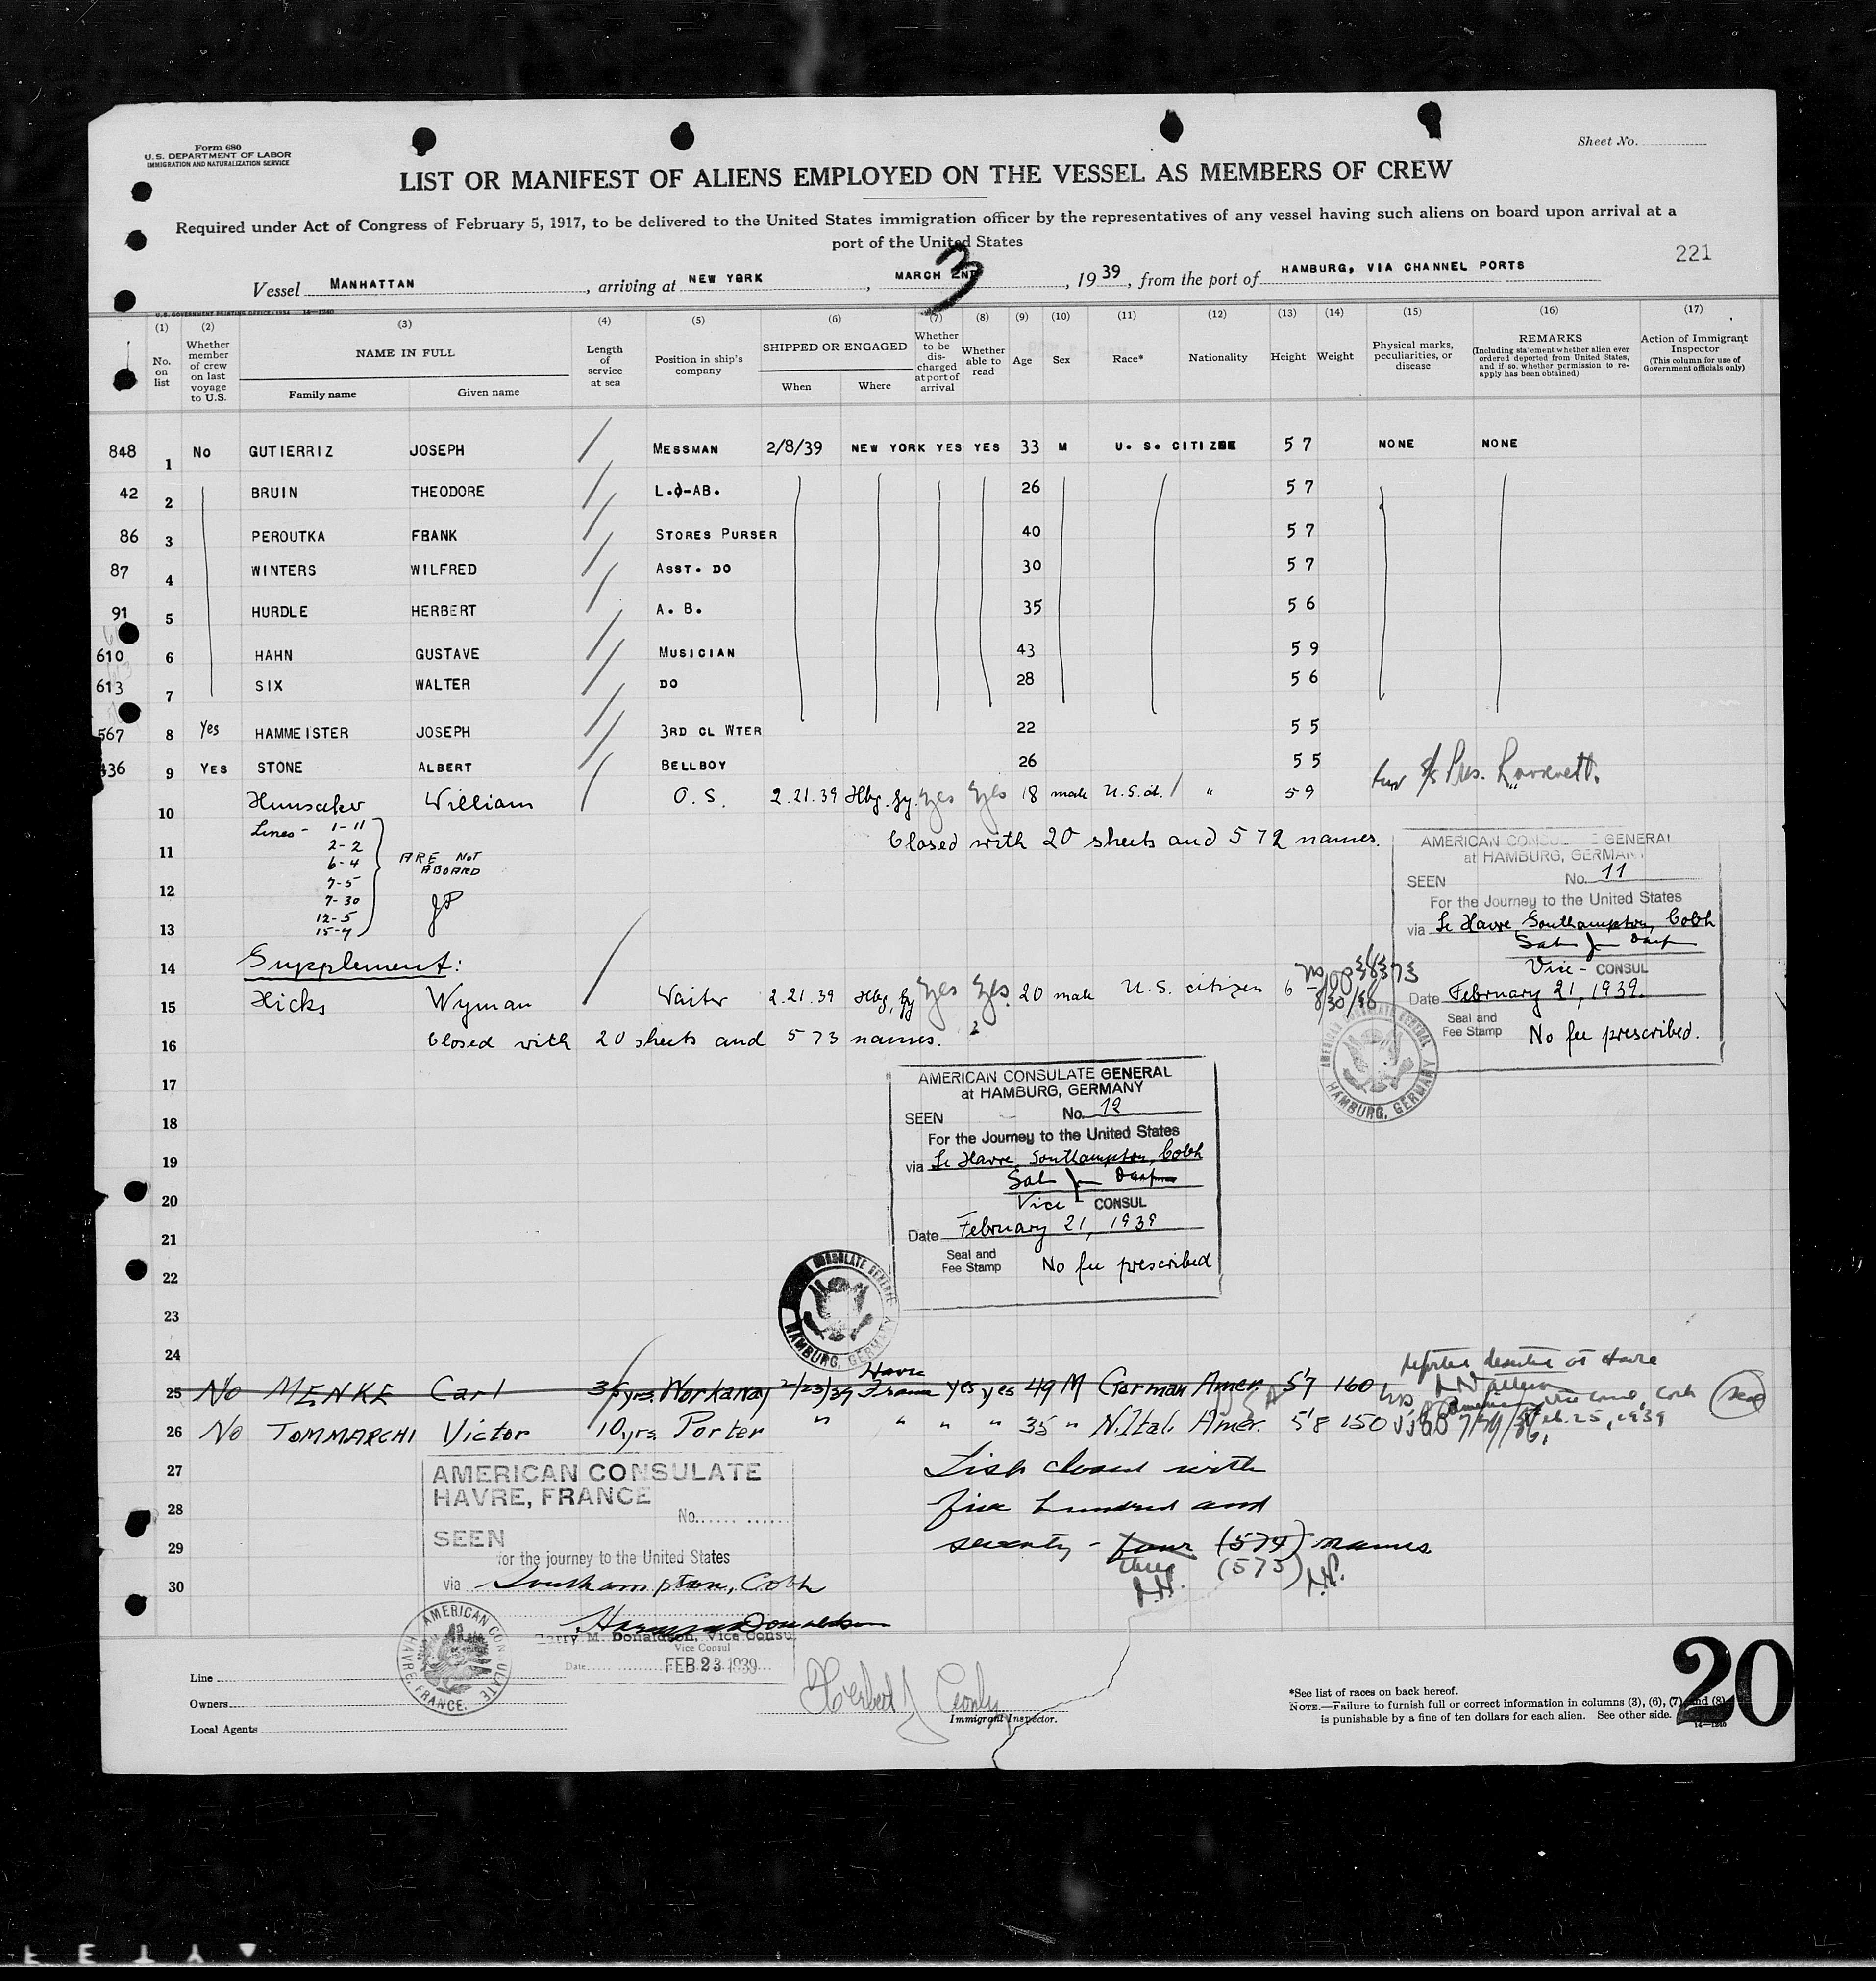 Form 680
U.S. DEPARTMENT OF LABOR
IMMIGRATION AND NATURALIZATION SERVICE
Sheet No.
LIST OR MANIFEST OF ALIENS EMPLOYED ON THE VESSEL AS MEMBERS OF CREW
Required under Act of Congress of February 5, 1917, to be delivered to the United States immigration officer by the representatives of any vessel having such aliens on board upon arrival at a
port of the United States
221
Vessel MANHATTAN, arriving at NEW YORK, MARCH 2ND 3, 1939, from the port of HAMBURG, VIA CHANNEL PORTS
U.S. GOVERNMENT PRINTING OFFICE: 1934 14—1240
(1) (2) (3) (4) (5) (6) (7) (8) (9) (10) (11) (12) (13) (14) (15) (16) (17)
No. on list
Whether member of crew on last voyage to U.S.
NAME IN FULL
Family name Given name
Length of service at sea
Position in ship's company
SHIPPED OR ENGAGED
When Where
Whether to be discharged at port of arrival
Whether able to read
Age Sex Race* Nationality Height Weight
Physical marks, peculiarities, or disease
REMARKS
(Including statement whether alien ever ordered deported from United States, and if so, whether permission to reapply has been obtained)
Action of Immigrant Inspector
(This column for use of Government officials only)
848 1 No GUTIERRIZ JOSEPH MESSMAN 2/8/39 NEW YORK YES YES 33 M U. S. CITIZEN 5 7 NONE NONE
42 2 BRUIN THEODORE L.O-AB. 26 5 7
86 3 PEROUTKA FRANK STORES PURSER 40 5 7
87 4 WINTERS WILFRED ASST. DO 30 5 7
91 5 HURDLE HERBERT A. B. 35 5 6
610 6 HAHN GUSTAVE MUSICIAN 43 5 9
613 7 SIX WALTER DO 28 5 6
567 8 Yes HAMMEISTER JOSEPH 3RD CL WTER 22 5 5
436 9 YES STONE ALBERT BELLBOY 26 5 5
10 Hunsaker William O. S. 2.21.39 Hbg. Gy. Yes Yes 18 male U.S. cit. " 5 9 from s/s Pres. Roosevelt.
11 Closed with 20 sheets and 572 names.
Lines - 1-11
2-2
6-4
7-5
7-30
12-5
15-4
ARE NOT ABOARD
JP
12
13
AMERICAN CONSULATE GENERAL
at HAMBURG, GERMANY
SEEN No. 11
For the Journey to the United States
via Le Havre, Southampton, Cobh
Vice - CONSUL
Date February 21, 1939.
Seal and Fee Stamp No fee prescribed.
AMERICAN CONSULATE GENERAL HAMBURG, GERMANY
14 Supplement:
15 Hicks Wyman Waiter 2.21.39 Hbg, Gy Yes Yes. 20 male U.S. citizen 6 -
8/30/38
16 Closed with 20 sheets and 573 names.
17
18
19
20
21
22
23
24
AMERICAN CONSULATE GENERAL
at HAMBURG, GERMANY
SEEN No. 12
For the Journey to the United States
via Le Havre, Southampton, Cobh
Vice CONSUL
Date February 21, 1939
Seal and Fee Stamp No fee prescribed
CONSULATE GENERAL HAMBURG, GERMANY
reported deserted at Havre
25 No MENKE Carl 35 yrs. Workaway 2/23/39 Havre France yes yes 49 M German Amer. 5'7 160
26 No TOMMARCHI Victor 10 yrs. Porter " " " " 35 " N.Ital. Amer. 5'8 150
Feb. 25, 1939
27 List closed with
28 five hundred and
29 seventy - four (574) names
30 three (573)
AMERICAN CONSULATE
HAVRE, FRANCE
No.
SEEN
for the journey to the United States
via Southampton, Cobh
Harry M. Donaldson
Harry M. Donaldson, Vice Consul
Vice Consul
Date FEB 23 1939
AMERICAN CONSULATE HAVRE, FRANCE.
Line
Owners
Local Agents
Immigrant Inspector.
*See list of races on back hereof.
NOTE.—Failure to furnish full or correct information in columns (3), (6), (7) and (8)
is punishable by a fine of ten dollars for each alien. See other side.
14—1240
20